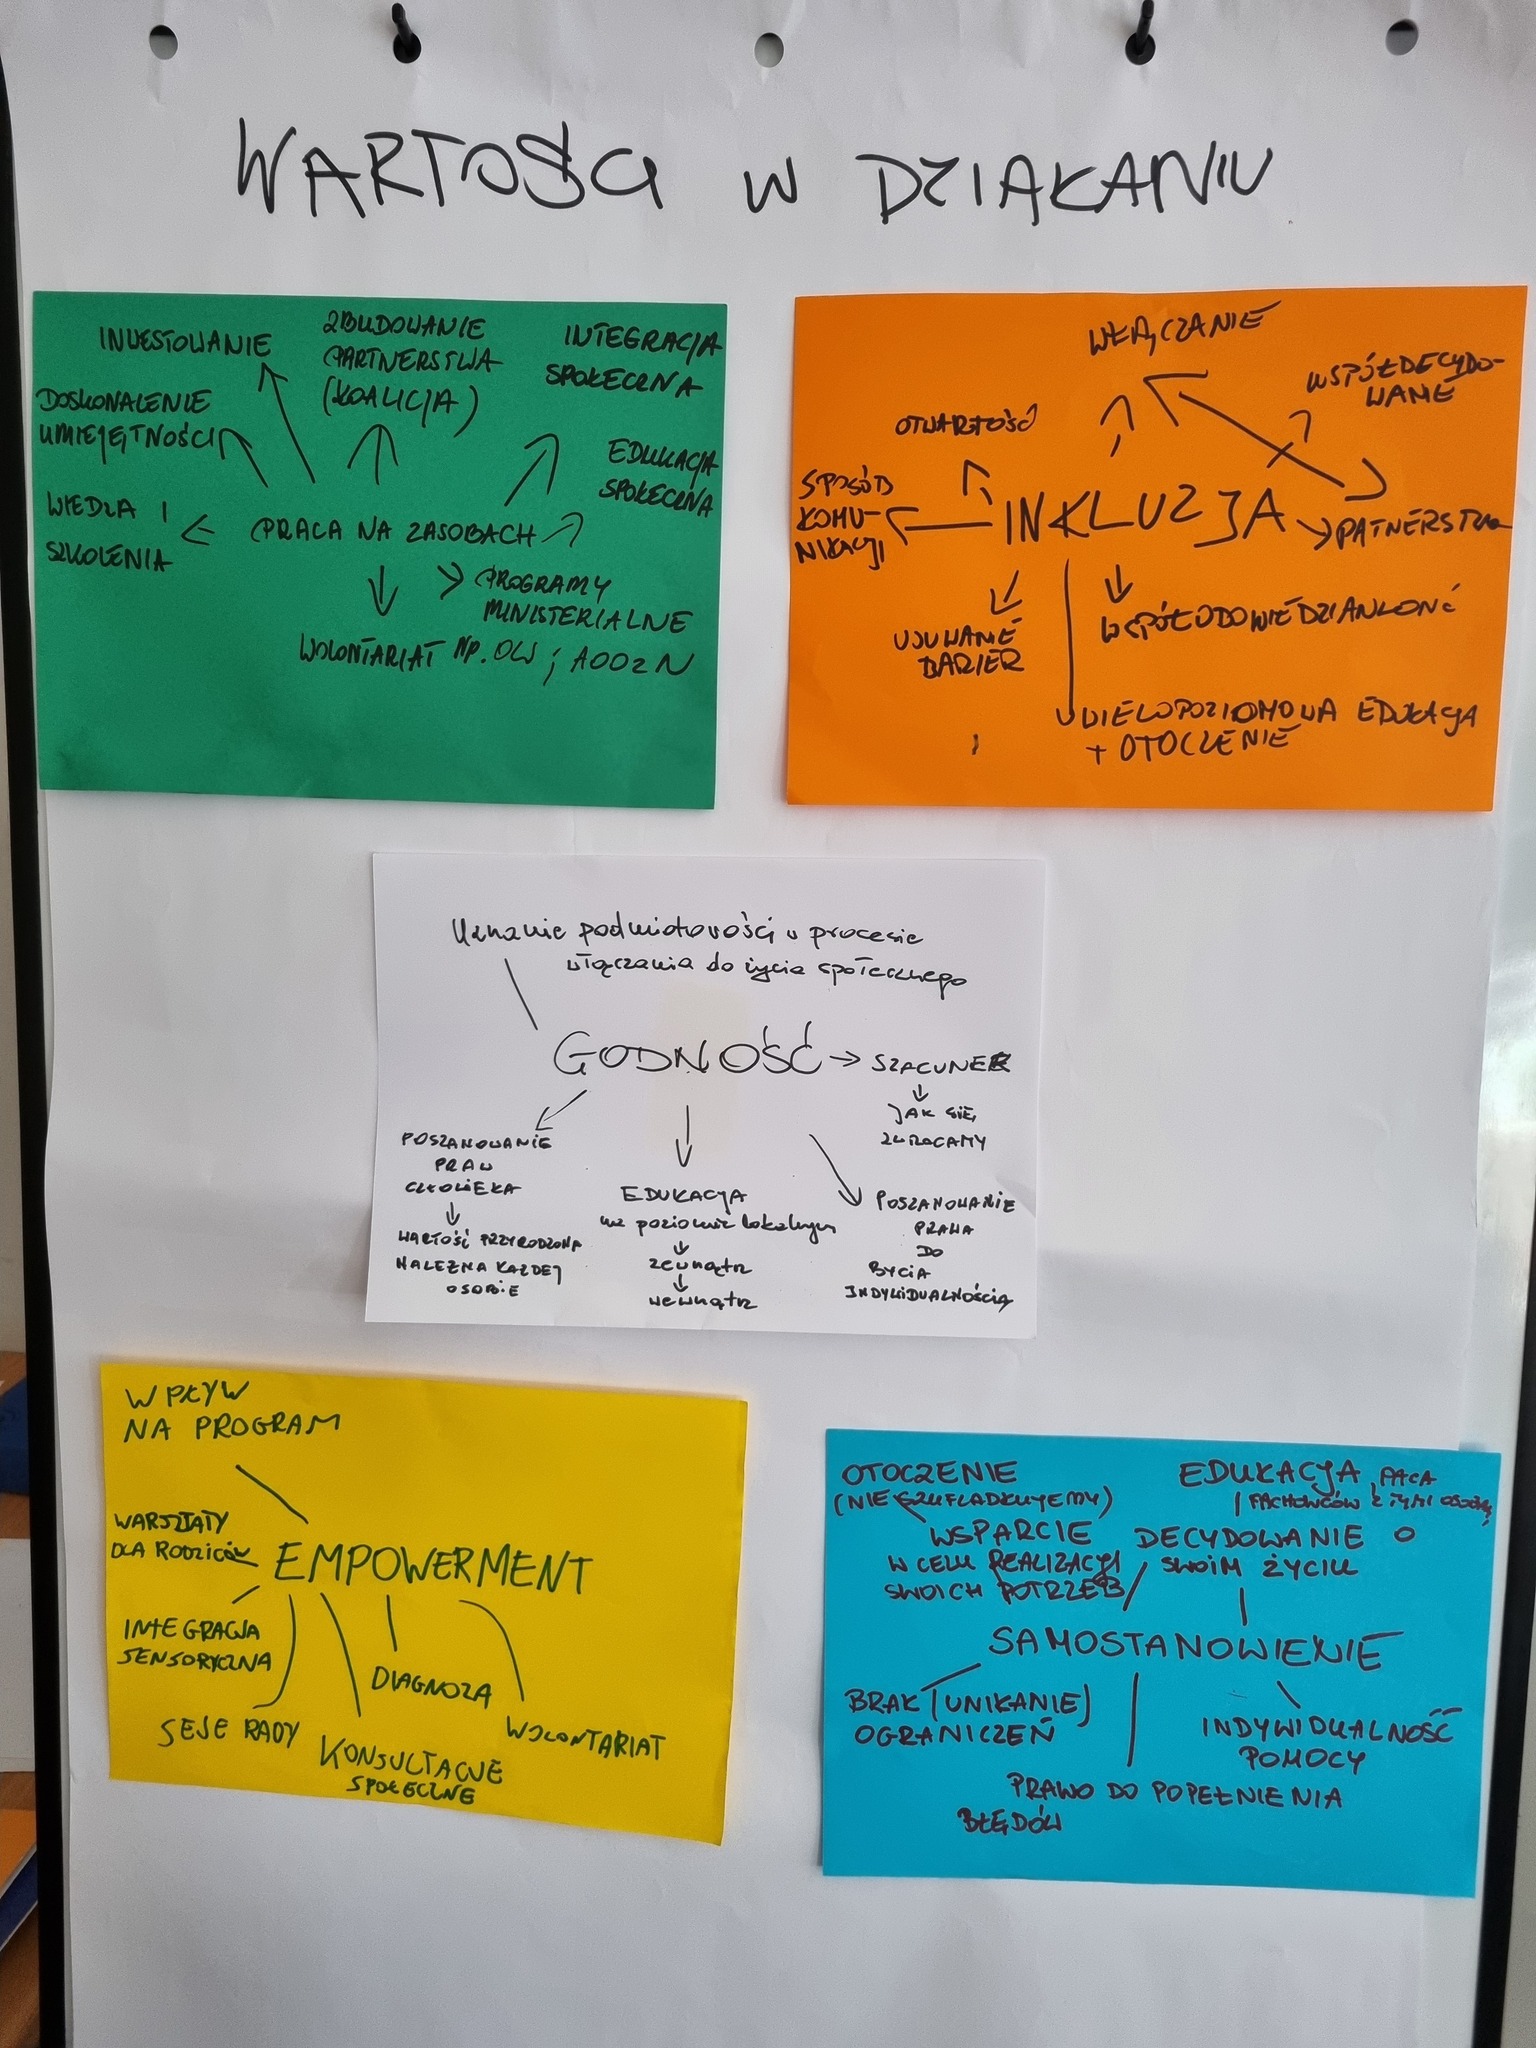 WARTOŚCI W DZIAŁANIU
INWESTOWANIE
ZBUDOWANIE
PARTNERSTWA
(KOALICJA)
INTEGRACJA
SPOŁECZNA
DOSKONALENIE
UMIEJĘTNOŚCI
EDUKACJA
SPOŁECZNA
WIEDZA I
SZKOLENIA
PRACA NA ZASOBACH
PROGRAMY
MINISTERIALNE
WOLONTARIAT NP. OW ; AOOzN
WŁĄCZANIE
WSPÓŁDECYDO-
WANIE
OTWARTOŚĆ
SPOSÓB
KOMU-
NIKACJI
INKLUZJA
PATNERSTWO
USUWANIE
BARIER
WSPÓŁODOWIEDZIANLONĆ
WIELOPOZIOMOWA EDUKACJA
+ OTOCZENIE
Uznanie podmiotowości w procesie
włączania do życia społecznego
GODNOŚĆ
SZACUNEK
JAK SIĘ
ZWRACAMY
POSZANOWANIE
PRAW
CZŁOWIEKA
WARTOŚĆ PRZYRODZONA
NALEŻNA KAŻDEJ
OSOBIE
EDUKACJA
na poziomie lokalnym
zewnątrz
wewnątrz
POSZANOWANIE
PRAWA
DO
BYCIA
INDYWIDUALNOŚCIĄ
WPŁYW
NA PROGRAM
WARSZTATY
DLA RODZICÓW
EMPOWERMENT
INTEGRACJA
SENSORYCZNA
DIAGNOZA
SESJE RADY
KONSULTACJE
SPOŁECZNE
WOLONTARIAT
OTOCZENIE
(NIE SZUFLADKUJEMY)
EDUKACJA, PACA
FACHOWCÓW Z TYMI OSOBĄ
WSPARCIE
W CELU REALIZACJI
SWOICH POTRZEB
DECYDOWANIE O
SWOIM ŻYCIU
SAMOSTANOWIENIE
BRAK (UNIKANIE)
OGRANICZEŃ
INDYWIDUALNOŚĆ
POMOCY
PRAWO DO POPEŁNIENIA
BŁĘDÓW